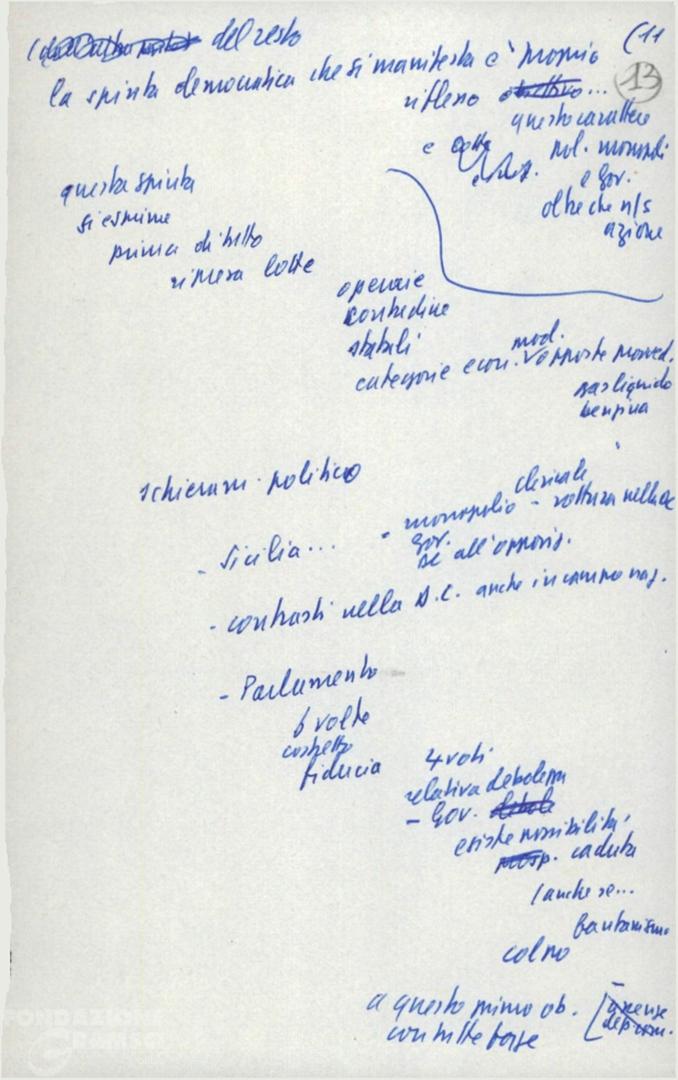 del resto
(11
13
la spinta democratica che si manifesta è proprio
riflesso obiettivo...
questo carattere
e lotte
pol. monopoli
e gov.
oltre che n/s
azione
questa spinta
si esprime
prima di tutto
ripresa lotte
operaie
contadine
statali
mod.
categorie econ. opposte provved.
gas liquido
benzina
schieram. politico
clericale
- Sicilia... - monopolio - rottura nella DC
gov.
DC all'opposiz.
- contrasti nella D.C. anche in campo naz.
- Parlamento
6 volte
costretto
fiducia
4 voti
relativa debolezza
- Gov. debole
esiste possibilità,
posp. caduta
(anche se...
colpo
a questo primo ob.
con tutte forze
FONDAZIONE
GRAMSCI